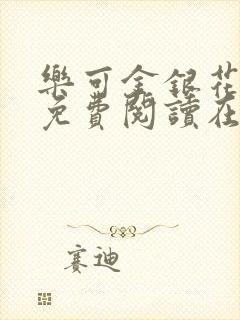 樂可金銀花
免費閱讀在
賽迪